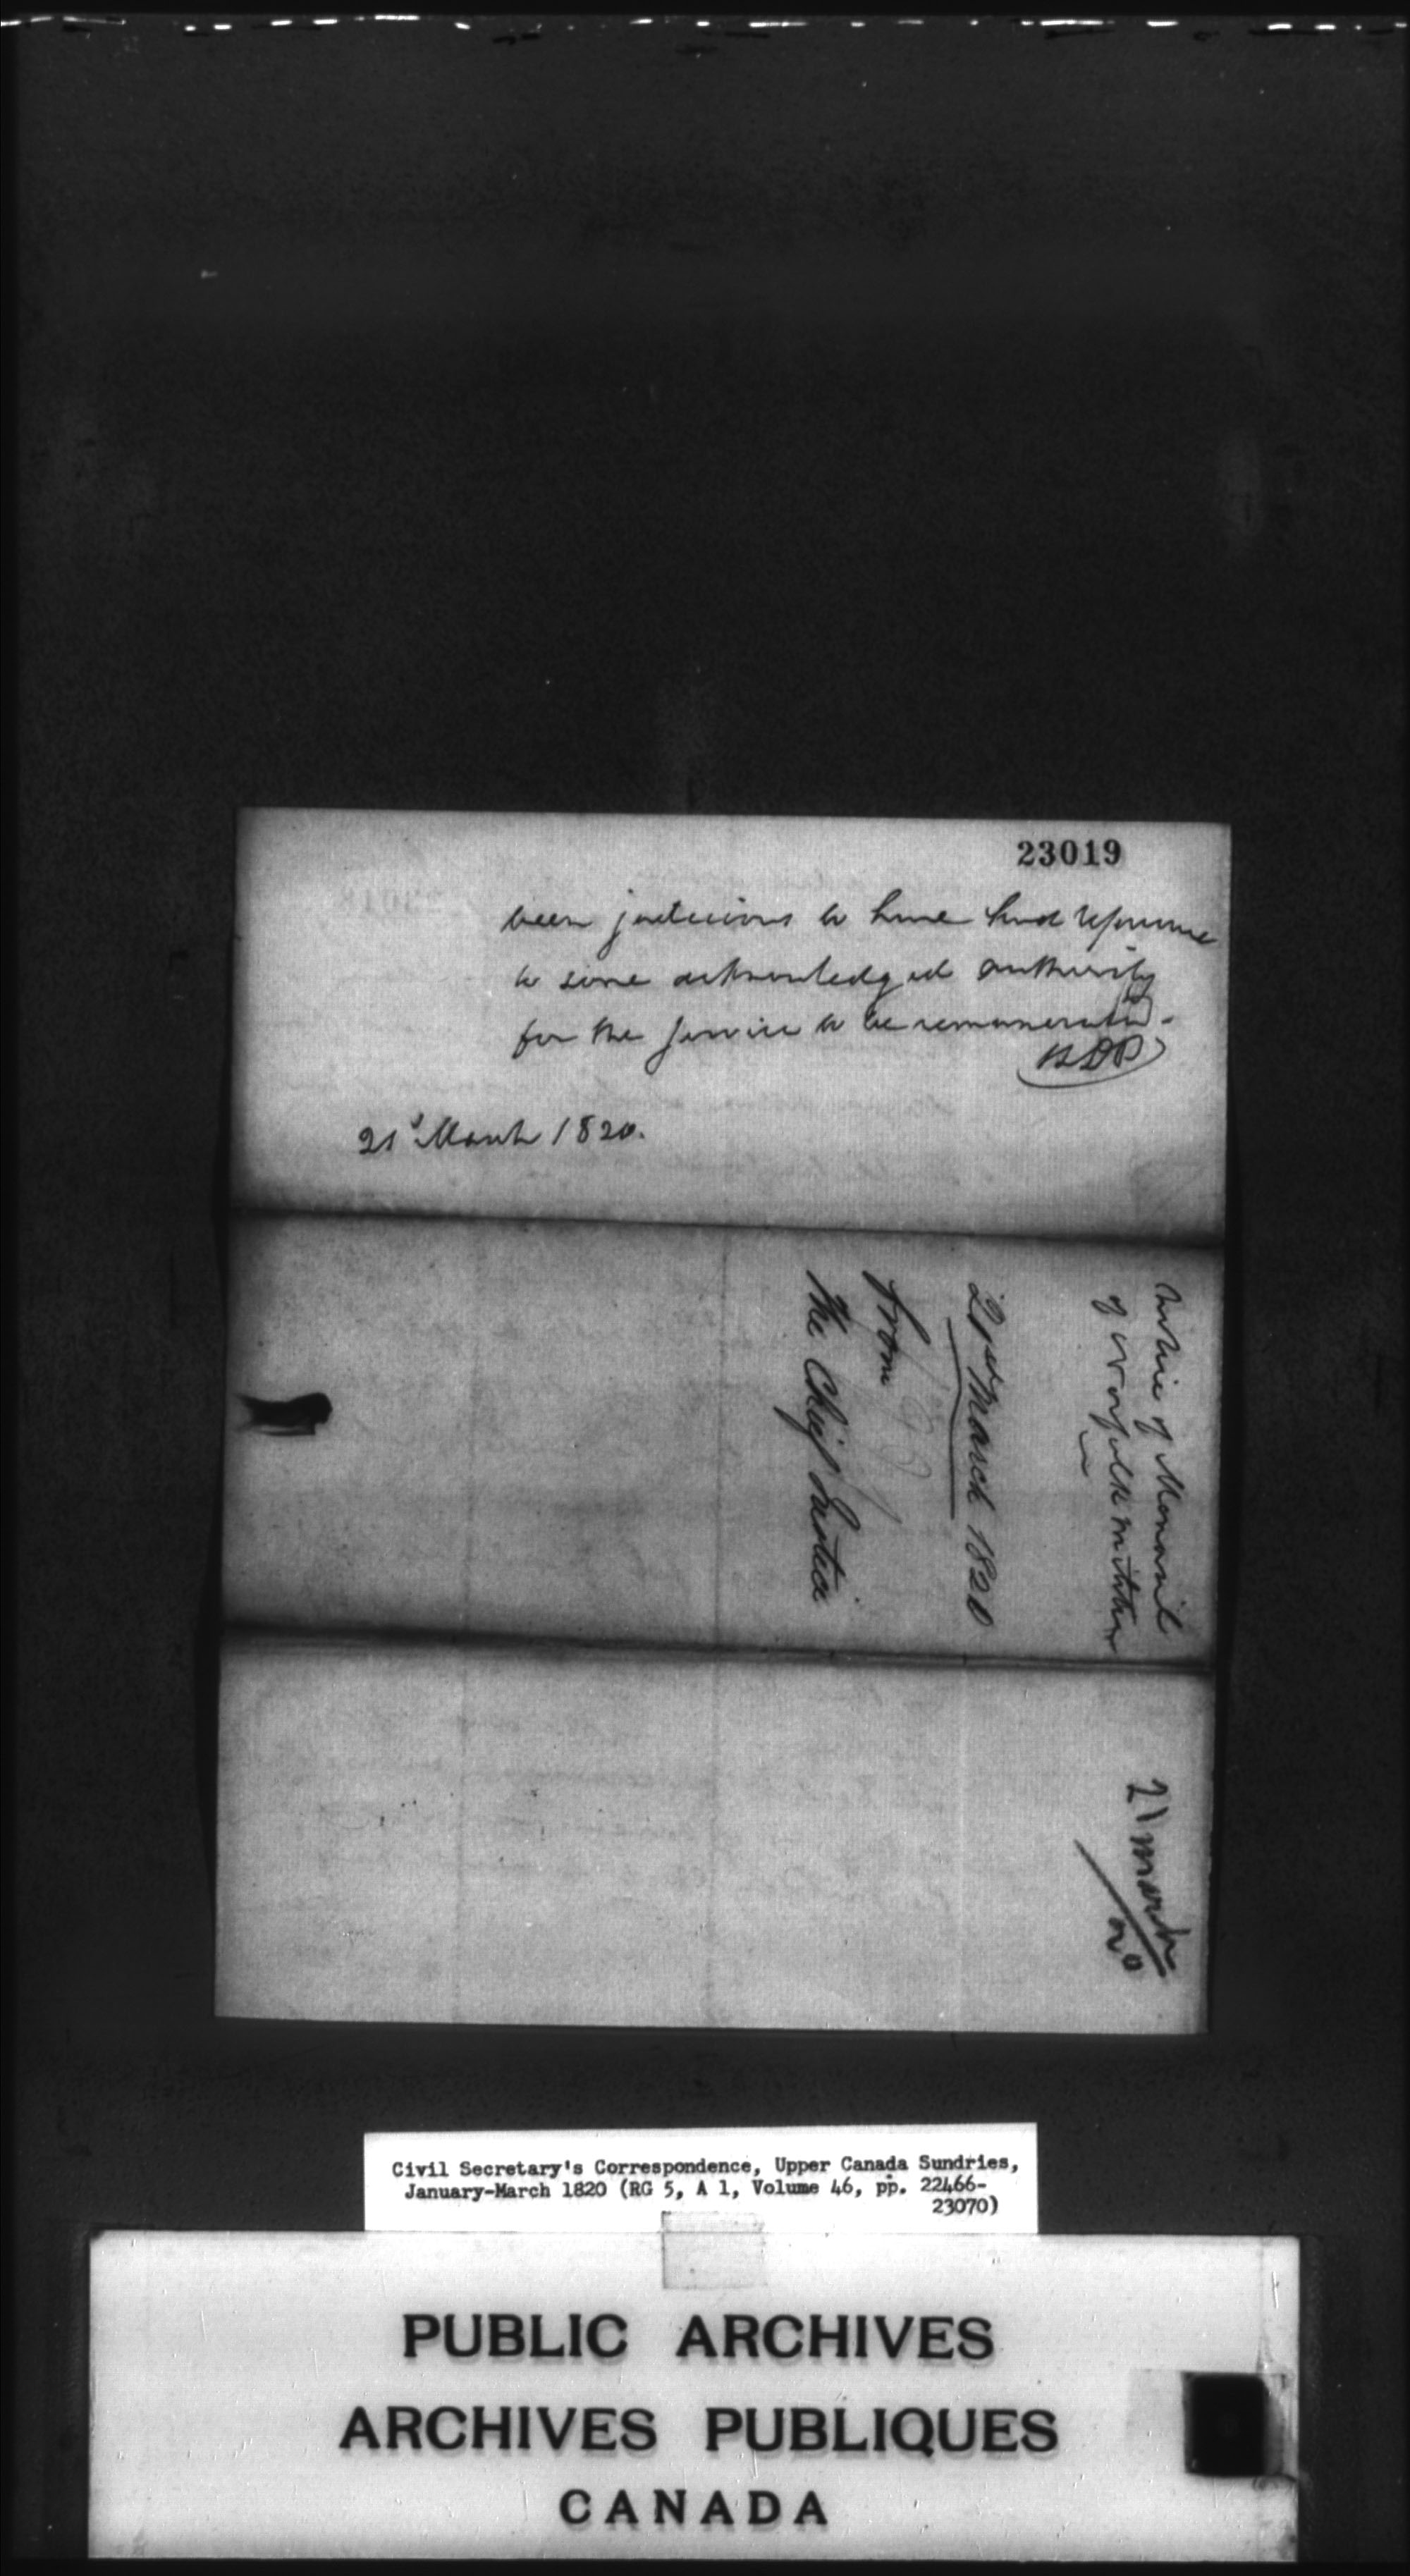 23019
been judicious to have had reference
to some acknowledged authority
for the service to be remunerated.
WDP
21st March 1820.
Notice of Memorial
of Norfolk militia
21st March 1820
from
The Chief Justice
21 March
20
Civil Secretary's Correspondence, Upper Canada Sundries,
January-March 1820 (RG 5, A 1, Volume 46, pp. 22466-
23070)
PUBLIC ARCHIVES
ARCHIVES PUBLIQUES
CANADA